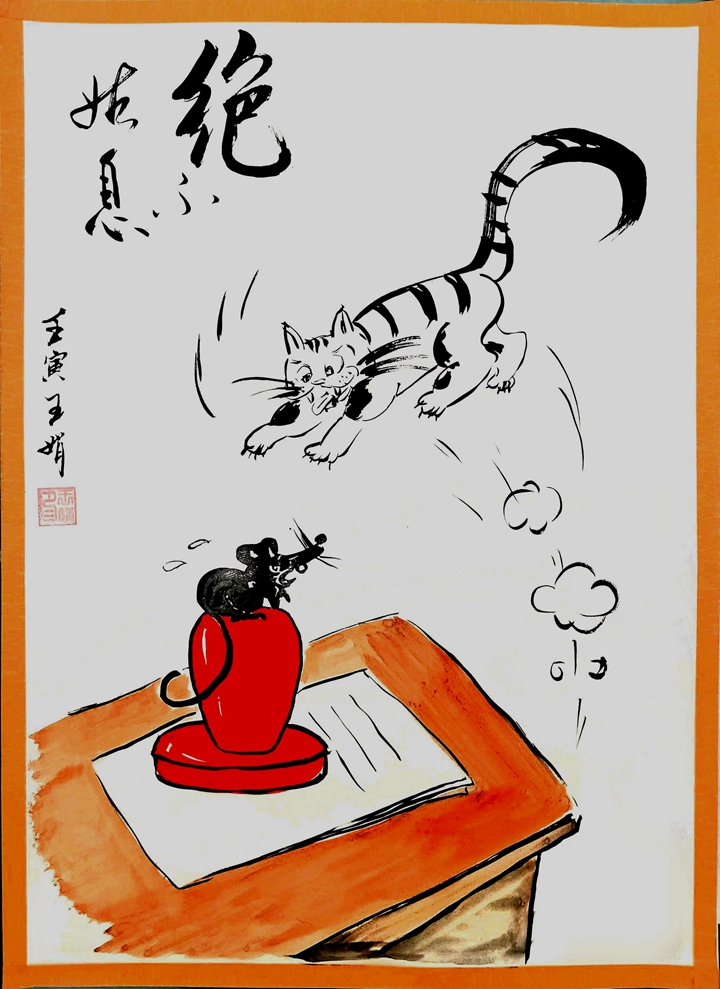 绝不
姑息
壬寅王娟